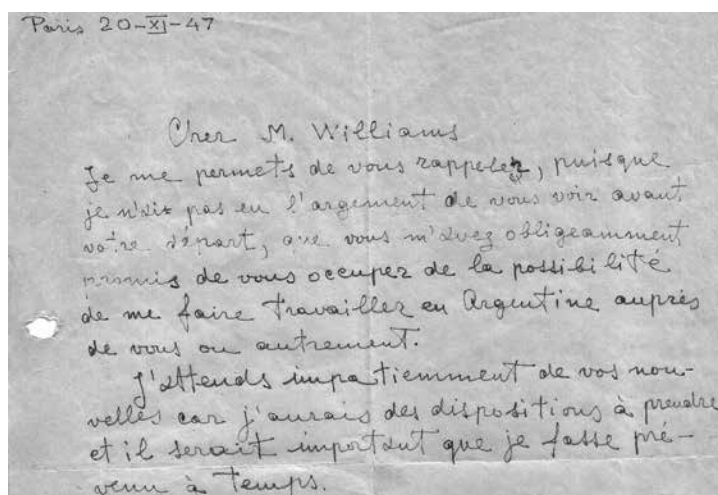 Paris 20-XI-47
Cher M. Williams
Je me permets de vous rappeler, puisque
je n'ai pas eu l'argement de vous voir avant
votre départ, que vous m'avez obligeamment
promis de vous occuper de la possibilité
de me faire travailler en Argentine auprès
de vous ou autrement.
J'attends impatiemment de vos nou-
velles car j'aurais des dispositions à prendre
et il serait important que je fasse pré-
venu à temps.